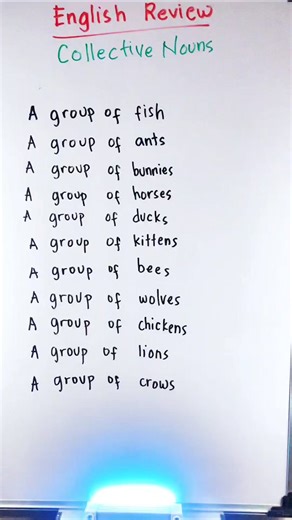 English Review
Collective Nouns
A group of fish
A group of ants
A group of bunnies
A group of horses
A group of ducks
A group of kittens
A group of bees
A group of wolves
A group of chickens
A group of lions
A group of crows